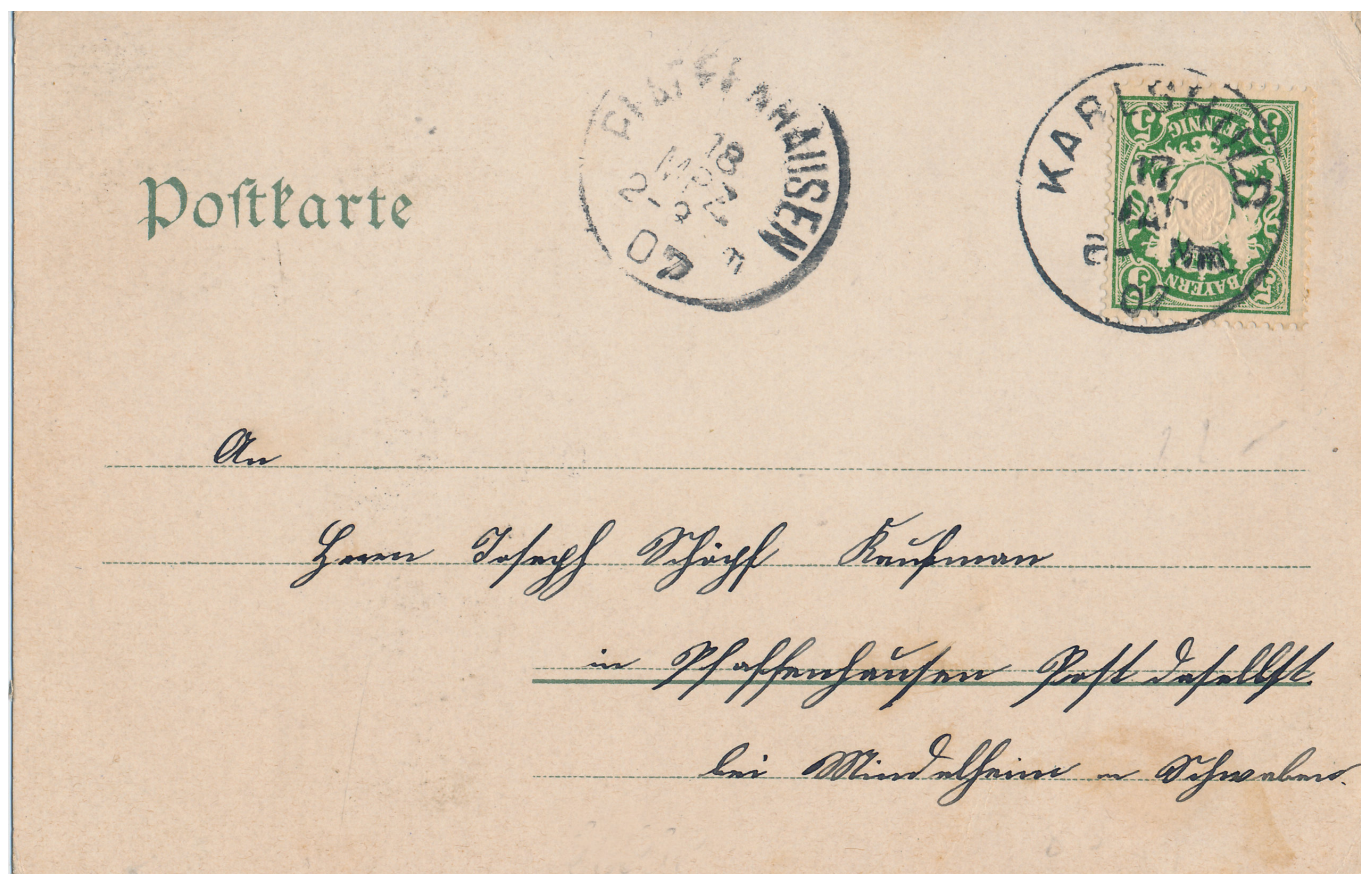 Postkarte
PFAFFENHAUSEN
18
MRZ
07
KARLSHULD
17
MRZ
07
5 PFENNIG 5
5 BAYERN 5
An
Herrn Joseph Schöpf Kaufman
in Pfaffenhausen Post daselbst
bei Mindelheim in Schwaben.